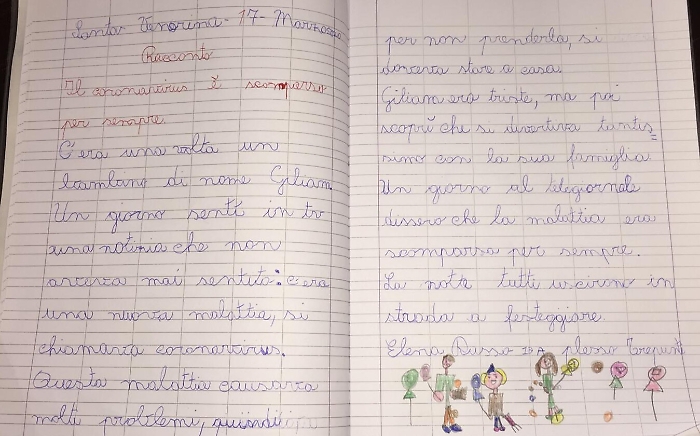 Santa Venerina - 17 - Marzo
Racconto
Il coronavirus è scomparso
per sempre.
C'era una volta un
bambino di nome Giliam
Un giorno sentì in tv
una notizia che non
aveva mai sentito: c'era
una nuova malattia, si
chiamava coronavirus.
Questa malattia causava
molti problemi, quindi
per non prenderla, si
doveva stare a casa.
Giliam era triste, ma poi
scoprì che si divertiva tantis=
simo con la sua famiglia
Un giorno al telegiornale
dissero che la malattia era
scomparsa per sempre.
La notte tutti uscirono in
strada a festeggiare.
Elena Russo plesso